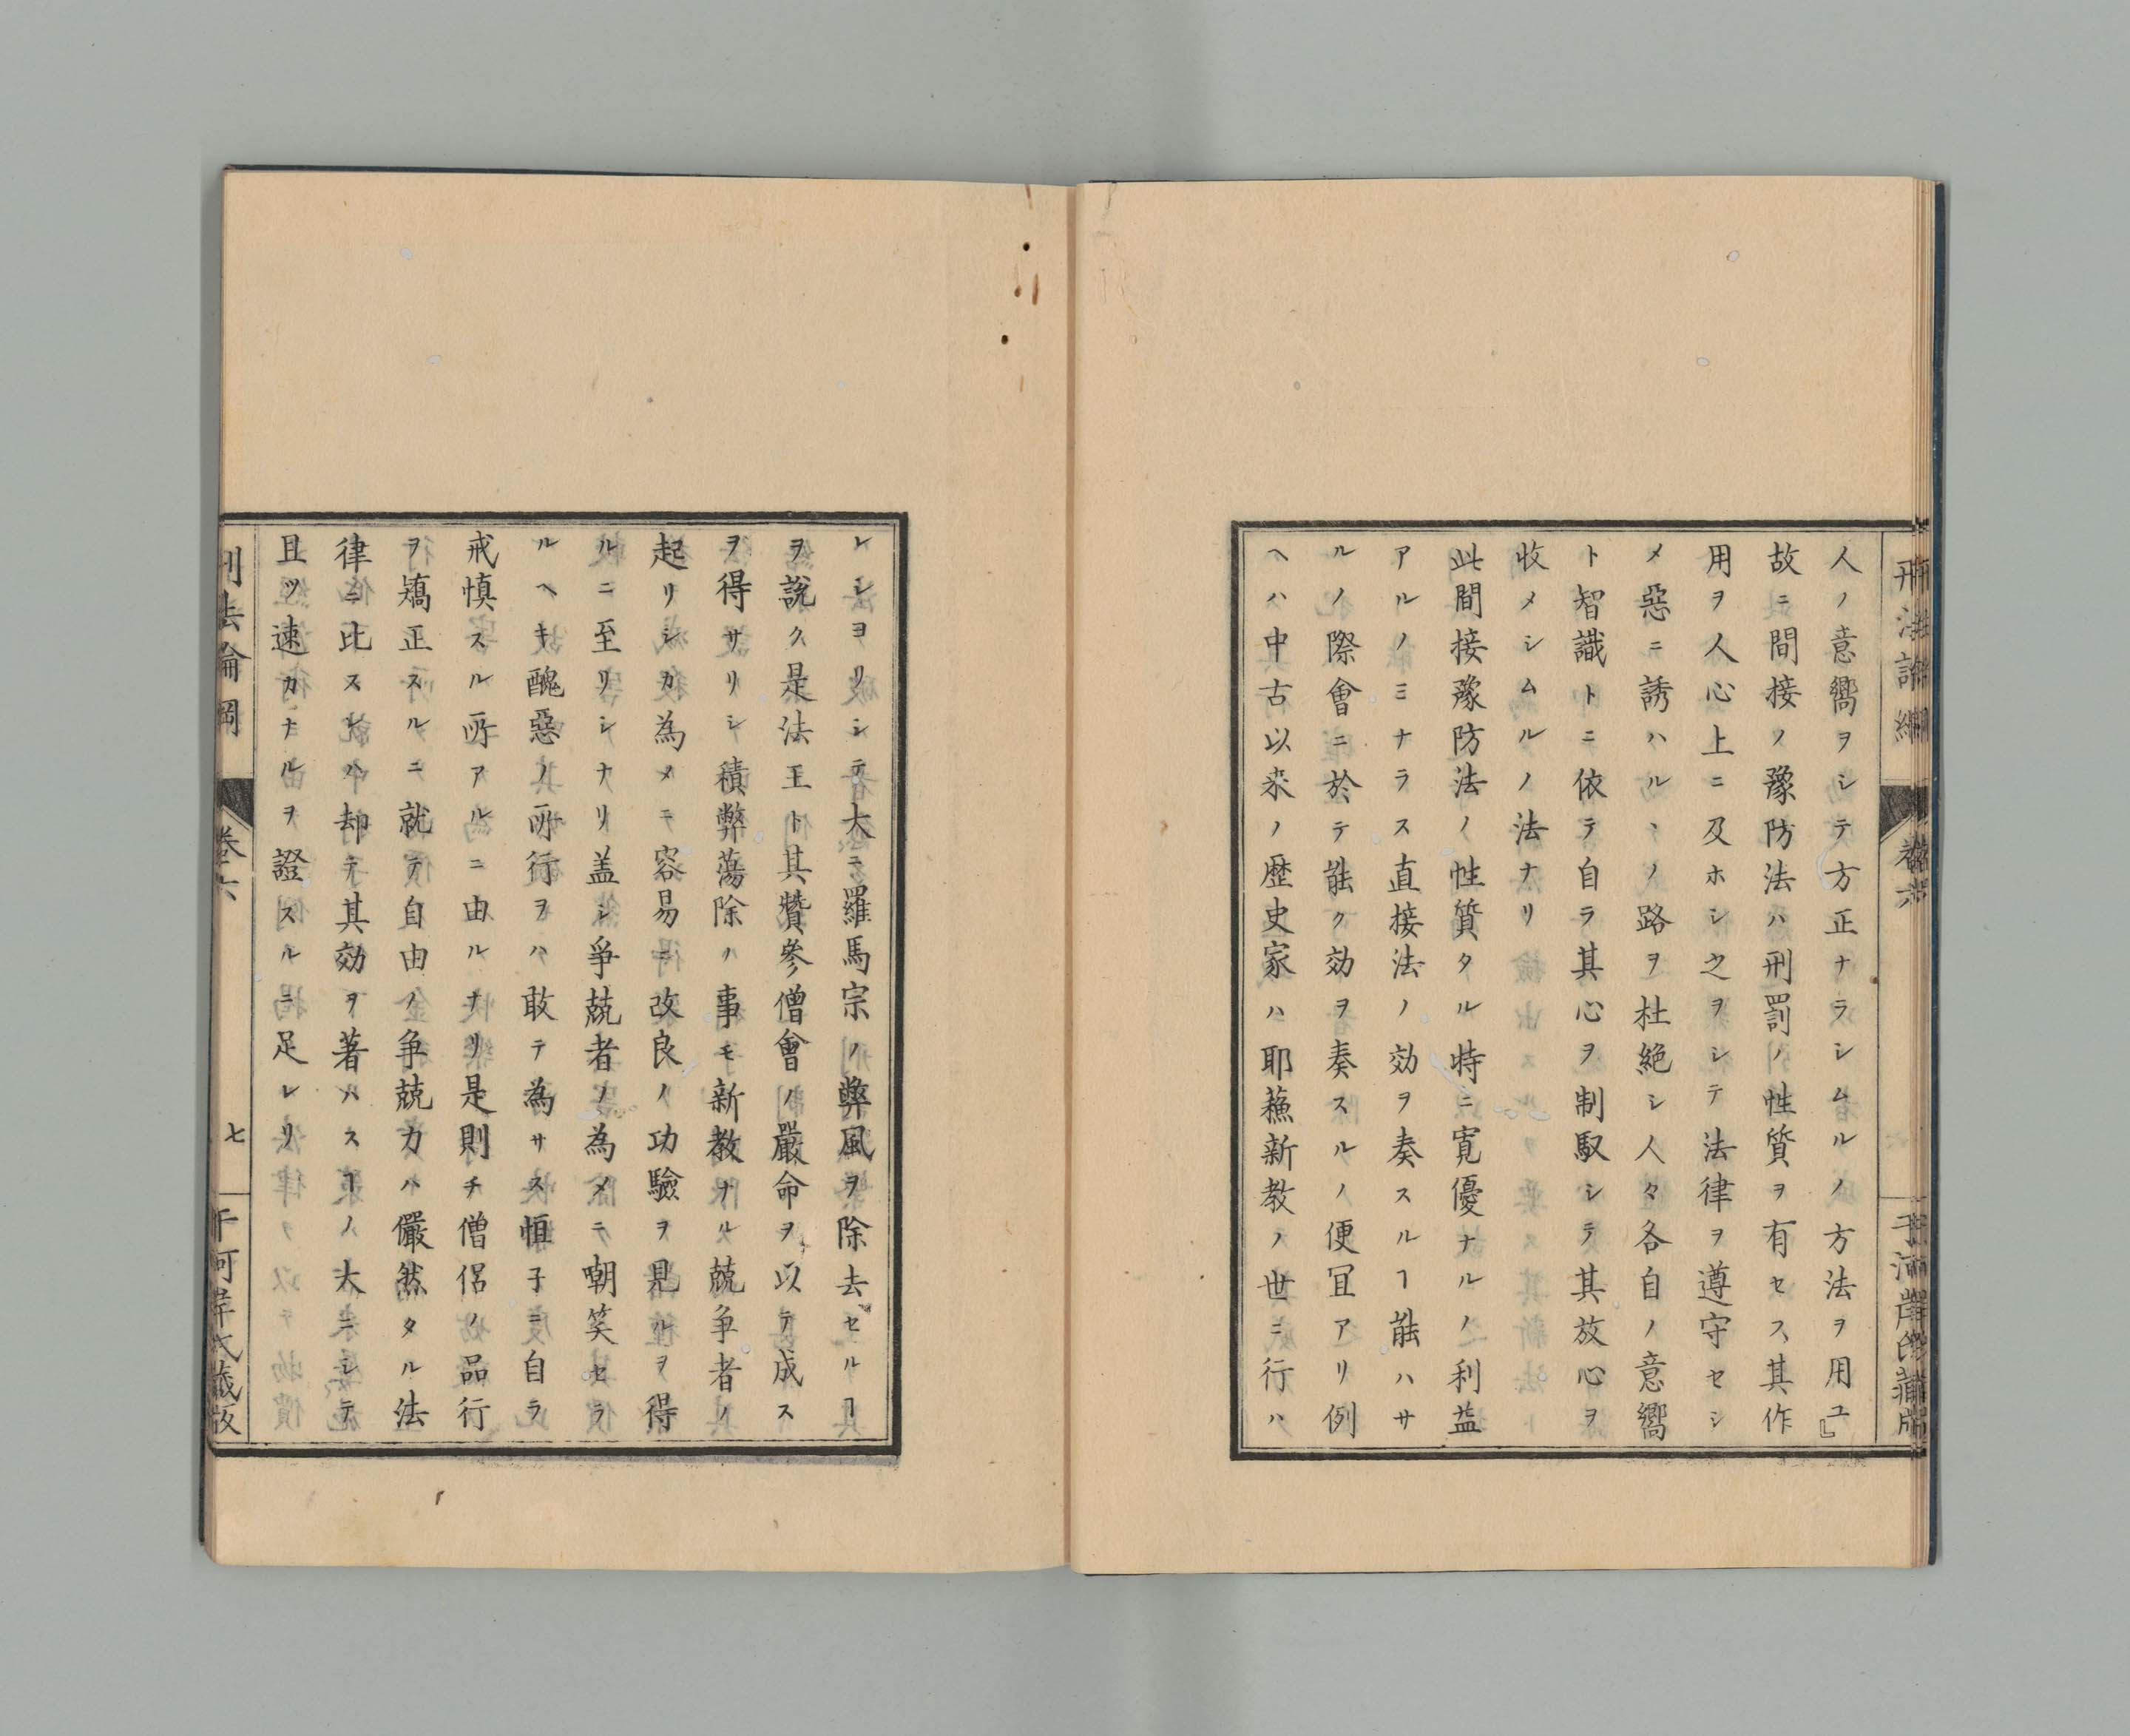 人ノ意嚮ヲシテ方正ナラシムルノ方法ヲ用ユ』
故ニ間接ノ豫防法ハ刑罰ノ性質ヲ有セス其作
用ヲ人心上ニ及ホシ之ヲシテ法律ヲ遵守セシ
メ惡ニ誘ハルヽノ路ヲ杜絶シ人々各自ノ意嚮
ト智識トニ依テ自ラ其心ヲ制馭シテ其放心ヲ
收メシムルノ法ナリ
此間接豫防法ノ性質タル特ニ寛優ナルノ利益
アルノミナラス直接法ノ効ヲ奏スルヿ能ハサ
ルノ際會ニ於テ能ク効ヲ奏スルノ便宜アリ例
ヘハ中古以來ノ歴史家ハ耶蘓新教ノ世ニ行ハ
レシヨリシテ大ニ羅馬宗ノ弊風ヲ除去セルヿ
ヲ說ク是法王ト其贊參僧會ノ嚴命ヲ以テ成ス
ヲ得サリシ積弊蕩除ノ事モ新教ナル競争者ノ
起リシカ為メニ容易ニ改良ノ功驗ヲ見ルヲ得
ルニ至リシナリ盖シ爭競者ノ為メニ嘲笑セラ
ルヘキ醜惡ノ所行ヲハ敢テ為サス恒子ニ自ラ
戒慎スル所アルニ由ルナリ是則チ僧侶ノ品行
ヲ矯正スルニ就テ自由ノ争競力ハ儼然タル法
律ニ比スレハ却テ其効ヲ著ハスヿノ大ニシテ
且ツ速カナルヲ證スルニ足レリ
刑法論綱
卷六
七
于河岸氏藏版